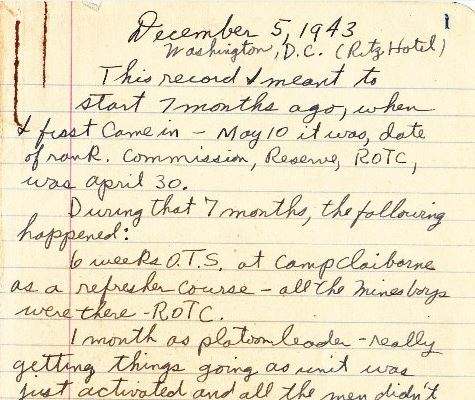 1
December 5, 1943
Washington, D.C. (Ritz Hotel)
This record I meant to
start 7 months ago, when
I first came in - May 10 it was, date
of rank. Commission, Reserve, ROTC,
was april 30.
During that 7 months, the following
happened:
6 weeks O.T.S. at Camp Claiborne
as a refresher course - all the Mines boys
were there - ROTC.
1 month as platoon leader - really
getting things going as unit was
just activated and all the men didn't